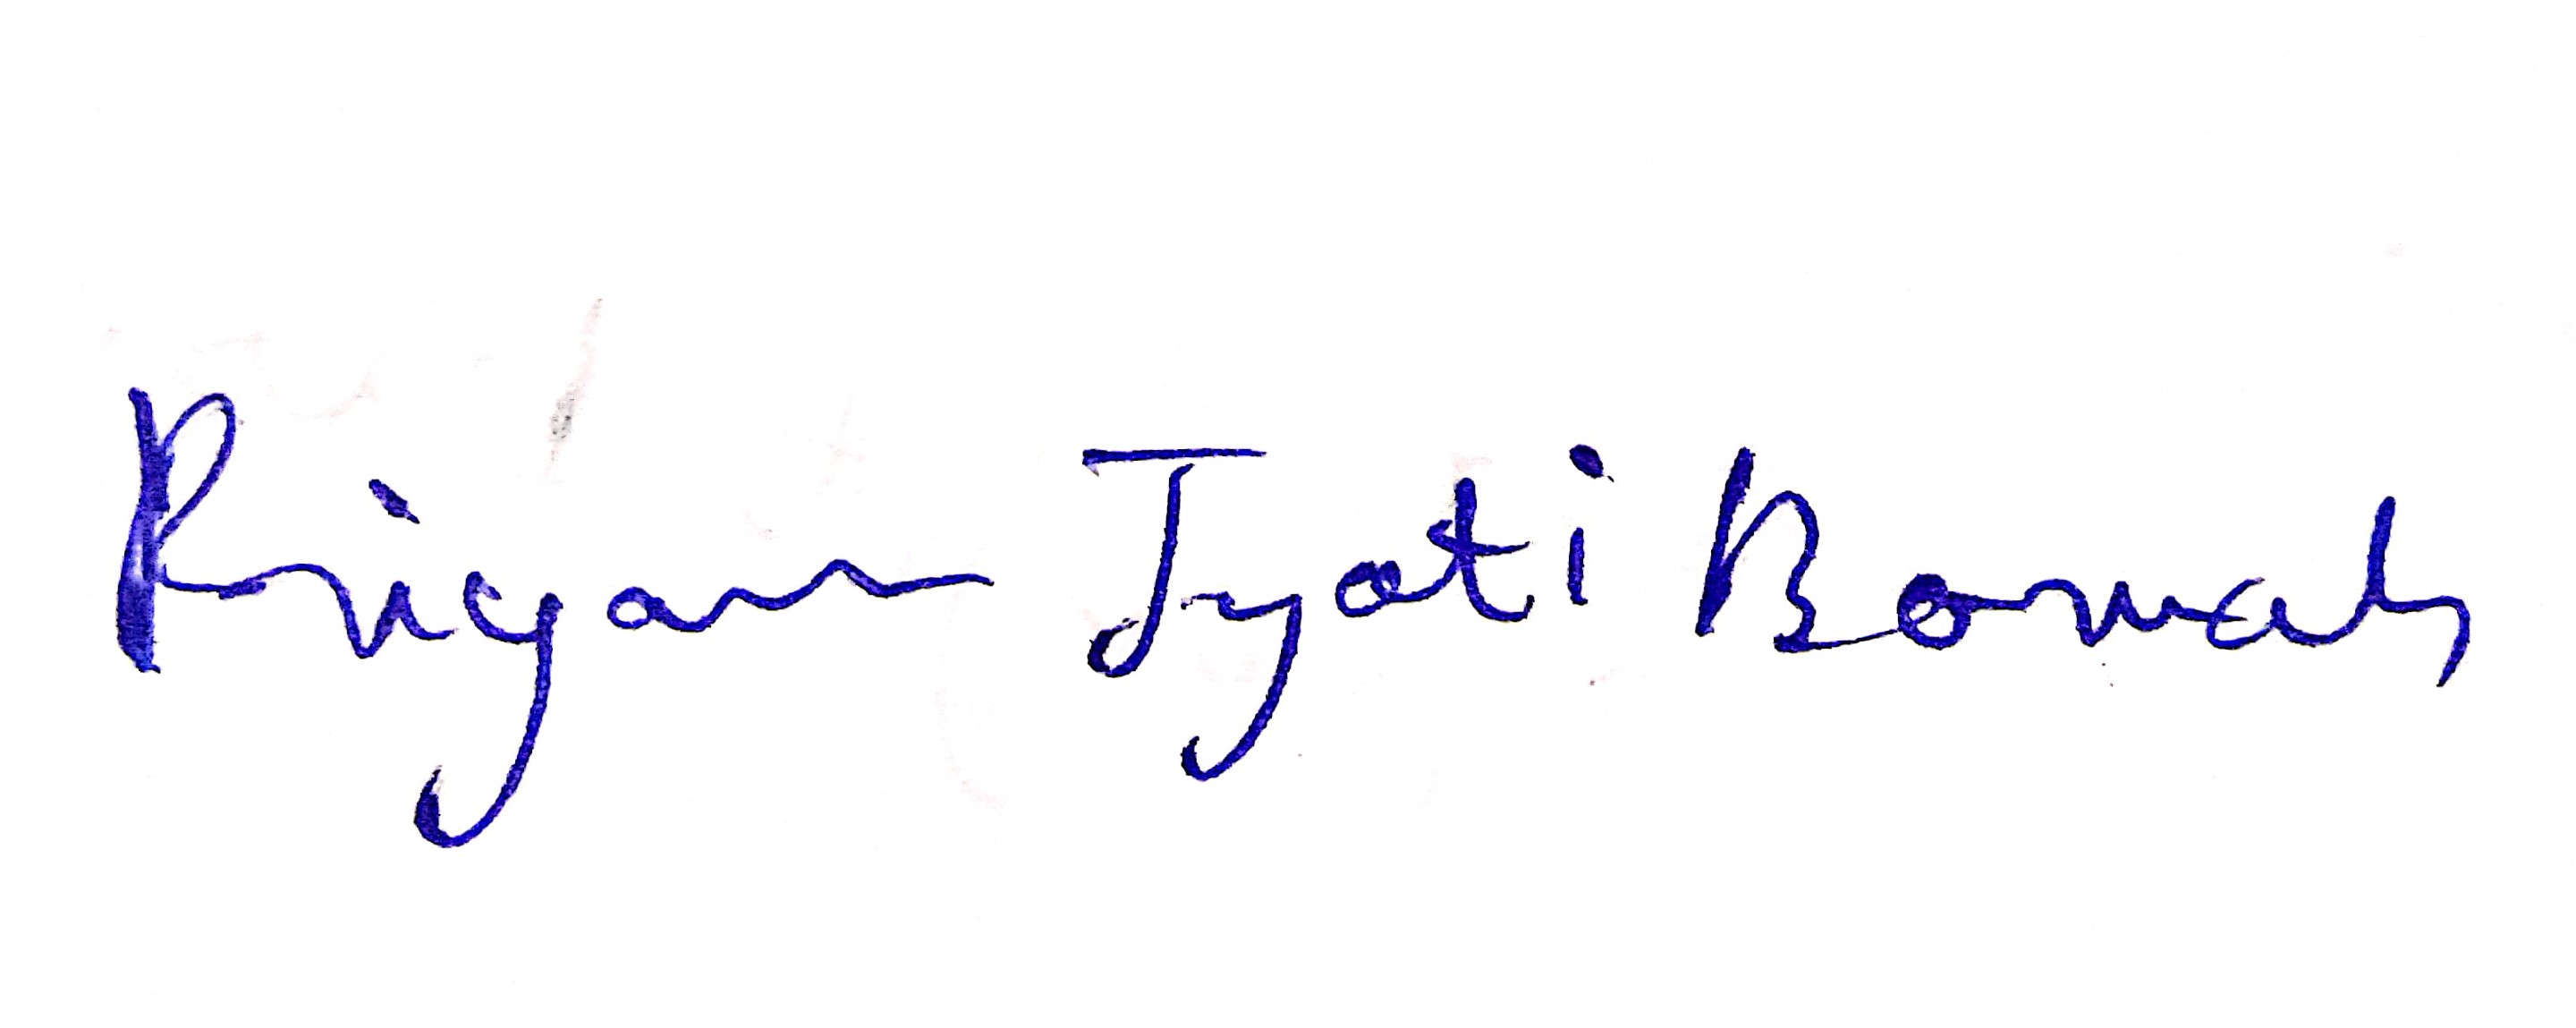 Priyam Jyoti Borah